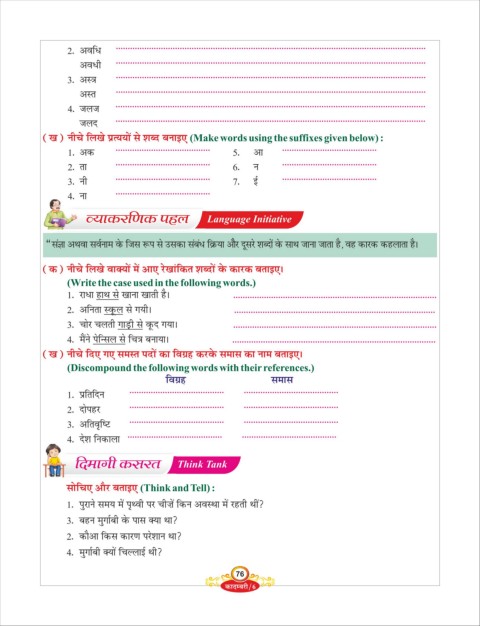 2. अवधि
अवधी
3. अस्त्र
अस्त
4. जलज
जलद
( ख ) नीचे लिखे प्रत्ययों से शब्द बनाइए (Make words using the suffixes given below) :
1. अक 5. आ
2. ता 6. न
3. नी 7. ई
4. ना
व्याकरणिक पहल Language Initiative
“ संज्ञा अथवा सर्वनाम के जिस रूप से उसका संबंध क्रिया और दूसरे शब्दों के साथ जाना जाता है, वह कारक कहलाता है।
( क ) नीचे लिखे वाक्यों में आए रेखांकित शब्दों के कारक बताइए।
(Write the case used in the following words.)
1. राधा हाथ से खाना खाती है।
2. अनिता स्कूल से गयी।
3. चोर चलती गाड़ी से कूद गया।
4. मैंने पेन्सिल से चित्र बनाया।
( ख ) नीचे दिए गए समस्त पदों का विग्रह करके समास का नाम बताइए।
(Discompound the following words with their references.)
विग्रह समास
1. प्रतिदिन
2. दोपहर
3. अतिवृष्टि
4. देश निकाला
दिमागी कसरत Think Tank
सोचिए और बताइए (Think and Tell) :
1. पुराने समय में पृथ्वी पर चीजें किन अवस्था में रहती थीं?
3. बहन मुर्गाबी के पास क्या था?
2. कौआ किस कारण परेशान था?
4. मुर्गाबी क्यों चिल्लाई थी?
76
कादम्बरी/6